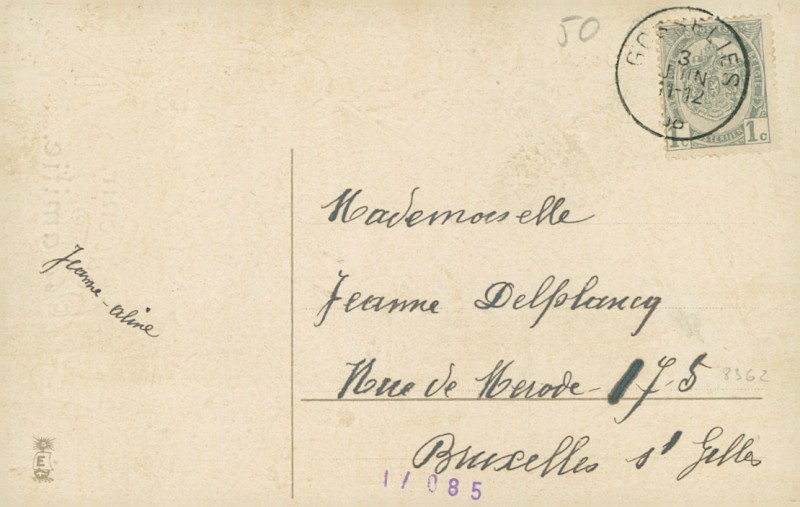 50
GOSSELIES
3
JUIN
11-12
08
1c 1c
Mademoiselle
Jeanne Delplancq
Rue de Merode - 175
8362
Bruxelles st Gilles
17085
Jeanne-Aline
E